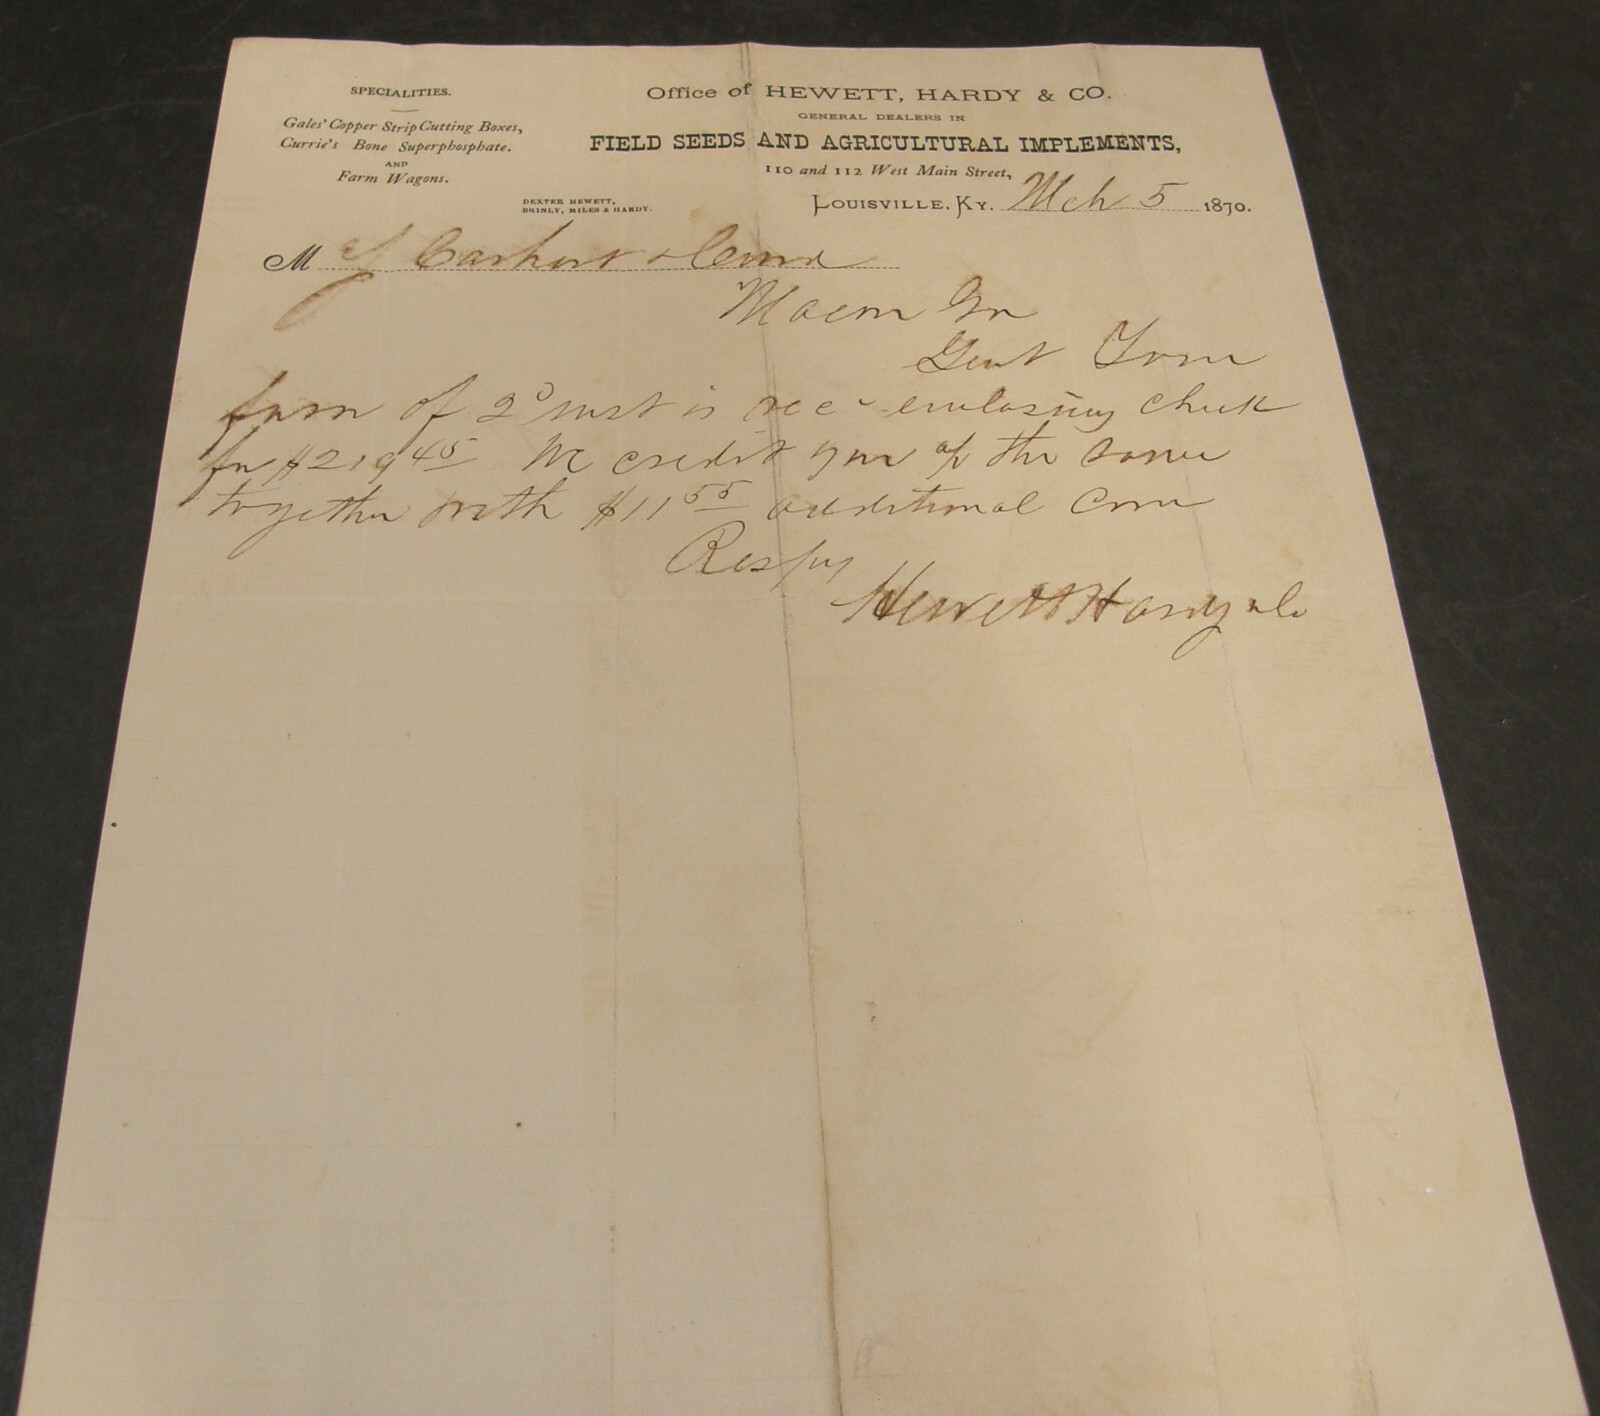 SPECIALITIES.
Gales' Copper Strip Cutting Boxes,
Currie's Bone Superphosphate.
AND
Farm Wagons.
Office of HEWETT, HARDY & CO.
GENERAL DEALERS IN
FIELD SEEDS AND AGRICULTURAL IMPLEMENTS,
110 and 112 West Main Street,
DEXTER HEWETT,
BRINLY, MILES & HARDY.
Louisville, Ky. Mch 5 1870.
M Carhart & Curd
Macon Ga
Gent Your
favor of 2d inst is rec enclosing check
for $219 45 We credit you of the same
together with $11 55 additional
Respy
Hewett Hardy & Co